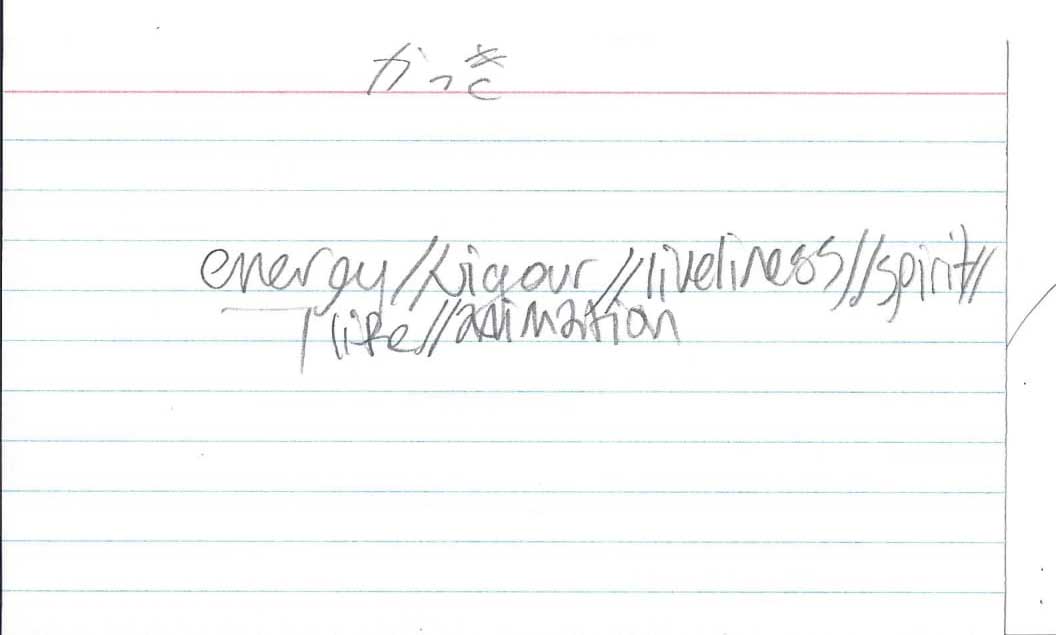 かっき
energy//vigour//liveliness//spirit//
life//animation